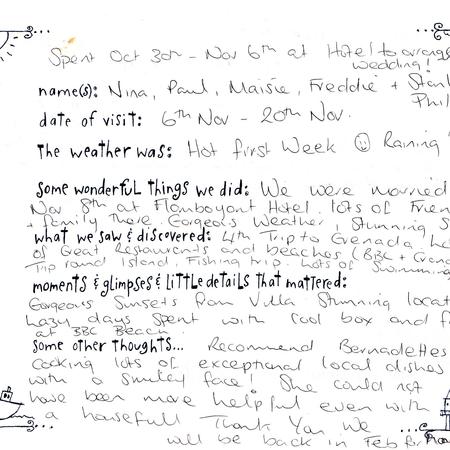 Spent Oct 30th - Nov 6th at Hotel to arrange
wedding!
name(s): Nina, Paul, Maisie, Freddie + Stan
Phil
date of visit: 6th Nov - 20th Nov.
The weather was: Hot first Week ☺ Raining
Some wonderful things we did: We were married
Nov 8th at Flamboyant Hotel, lots of Frien
+ family There. Gorgeous Weather, Stunning S
what we saw & discovered: 4th Trip to Grenada,
of Great Restaurants and beaches (BBC + Gren
Trip round Island, Fishing trip. Lots of Swimming
moments & glimpses & little details that mattered:
Gorgeous Sunsets From Villa Stunning locat
Lazy days Spent with cool box and f
at BBC Beach.
Some other thoughts... Recommend Bernadettes
Cooking lots of exceptional local dishes
with a smiley face! She could not
have been more helpful even with
a housefull Thank You We
will be back in Feb for